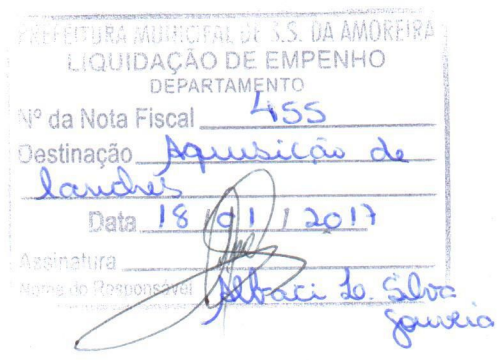 PREFEITURA MUNICIPAL DE S.S. DA AMOREIRA
LIQUIDAÇÃO DE EMPENHO
DEPARTAMENTO
Nº da Nota Fiscal 455
Destinação Aquisição de
lanches
Data 18 / 01 / 2017
Assinatura
Nome do Responsável Albaci L. Silva
Gouveia